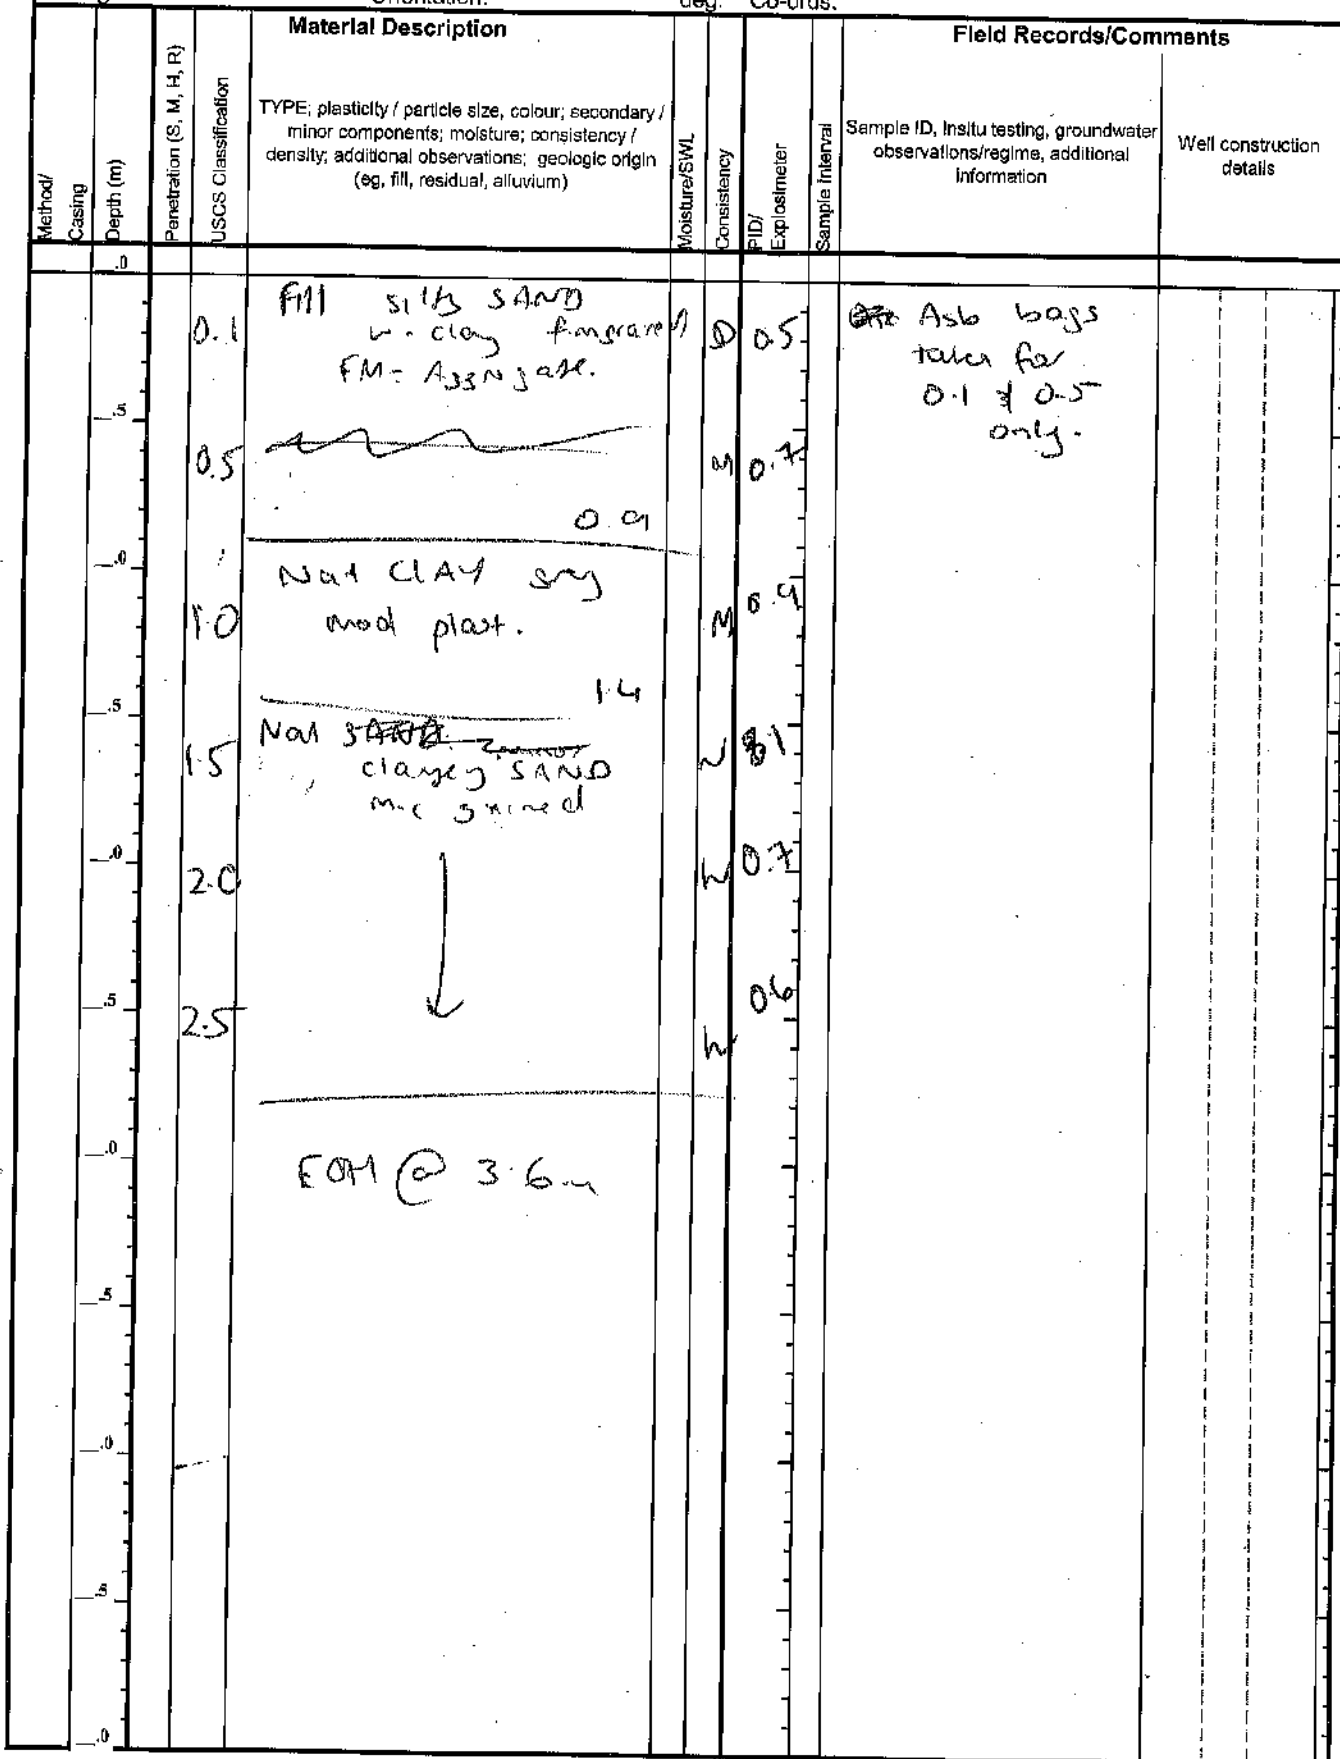 Orientation: deg. Co-ords:
Material Description
Field Records/Comments
Method/
Casing
Depth (m)
Penetration (S, M, H, R)
USCS Classification
TYPE; plasticity / particle size, colour; secondary /
minor components; moisture; consistency /
density; additional observations; geologic origin
(eg, fill, residual, alluvium)
Moisture/SWL
Consistency
PID/
Explosimeter
Sample Interval
Sample ID, Insitu testing, groundwater
observations/regime, additional
information
Well construction
details
.0
Fill silty SAND
0.1 w. clay D 0.5
FM-
Asb bags
taken for
0.1 & 0.5
only.
.5
0.5 M 0.7
0.9
.0
Nat CLAY
1.0 mod plast. M 0.9
1.4
.5
Nat SAND
1.5 clayey SAND W
m-c grained
.0
2.0 W 0.7
.5
2.5 W 0.6
.0
EOH @ 3.6m
.5
.0
.5
.0